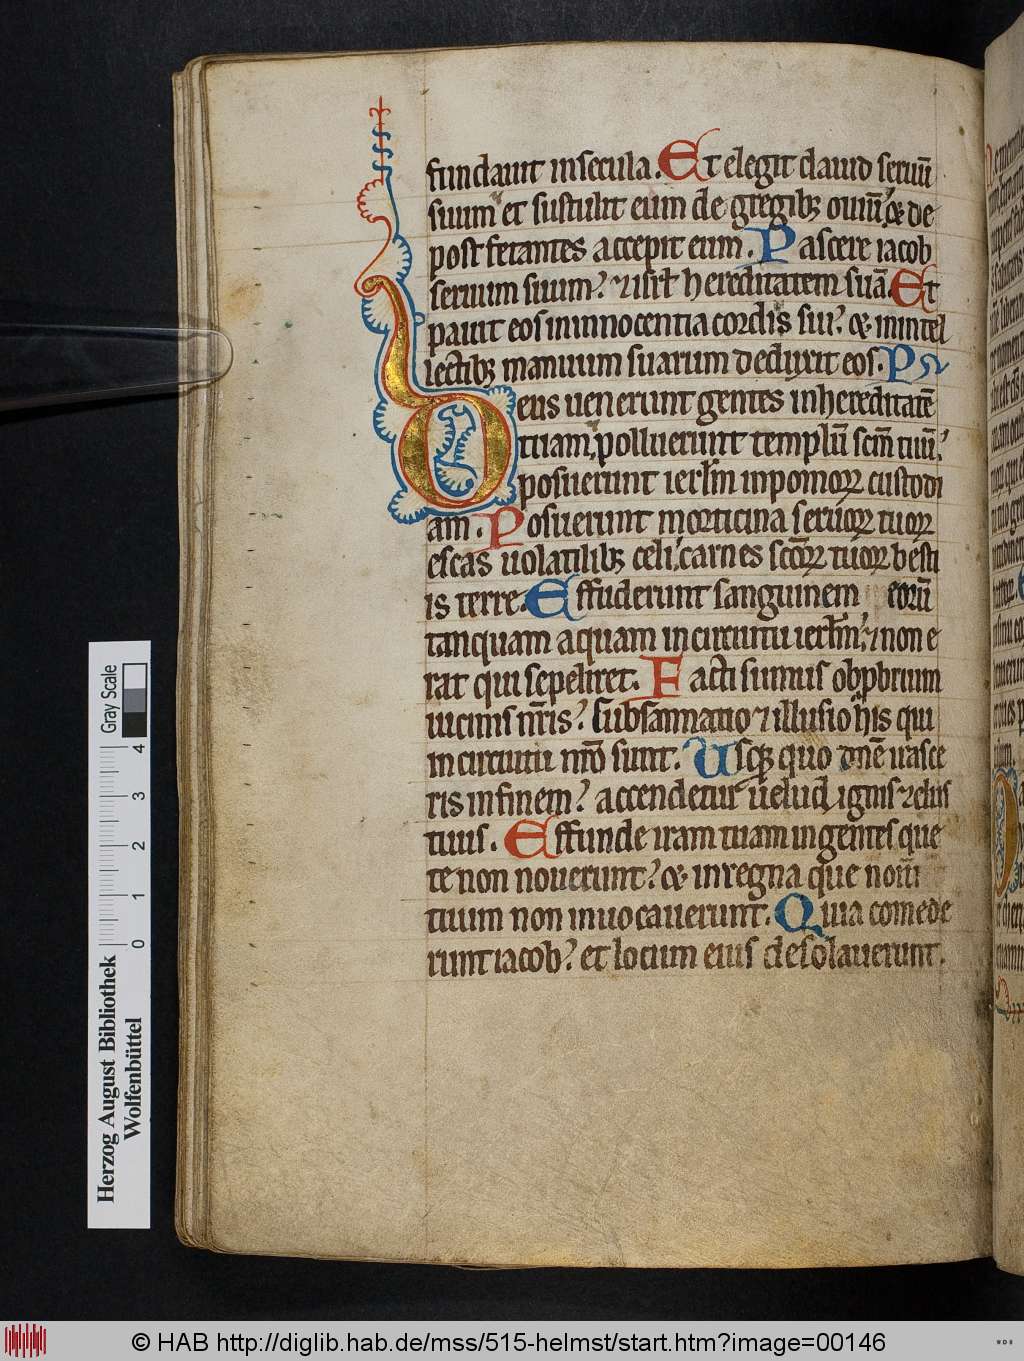 fundauit insecula. Et elegit dauid seruū
suum et sustulit eum de gregibꝫ ouiū ⁊ de
post fetantes accepit eum. Pascere iacob
seruum suum? ⁊ isrł hereditatem suā. Et
pauit eos ininnocentia cordis sui? ⁊ inintel
lectibꝫ manuum suarum deduxit eos. Ps
Deus uenerunt gentes inhereditatē
tuam, polluerunt templū scm̄ tuū?
posuerunt ierłm inpomoꝝ custodi
am. Posuerunt morticina seruoꝝ tuoꝝ
escas uolatilibꝫ celi, carnes scōꝝ tuoꝝ besti
is terre. Effuderunt sanguinem eorū
tanquam aquam incircuitu ierłm, ⁊ non e
rat qui sepeliret. Facti sumus obpbrium
uicinis nr̄is? subsannatio ⁊ illusio his qui
incircuitu nr̄o sunt. Usqꝫ quo dn̄e irasce
ris infinem? accendetur uelud ignis ⁊elus
tuus. Effunde iram tuam ingentes que
te non nouerunt? ⁊ inregna que nom̄
tuum non inuocauerunt. Quia comede
runt iacob? et locum eius desolauerunt.
Gray Scale
0 1 2 3 4
Herzog August Bibliothek
Wolfenbüttel
© HAB http://diglib.hab.de/mss/515-helmst/start.htm?image=00146